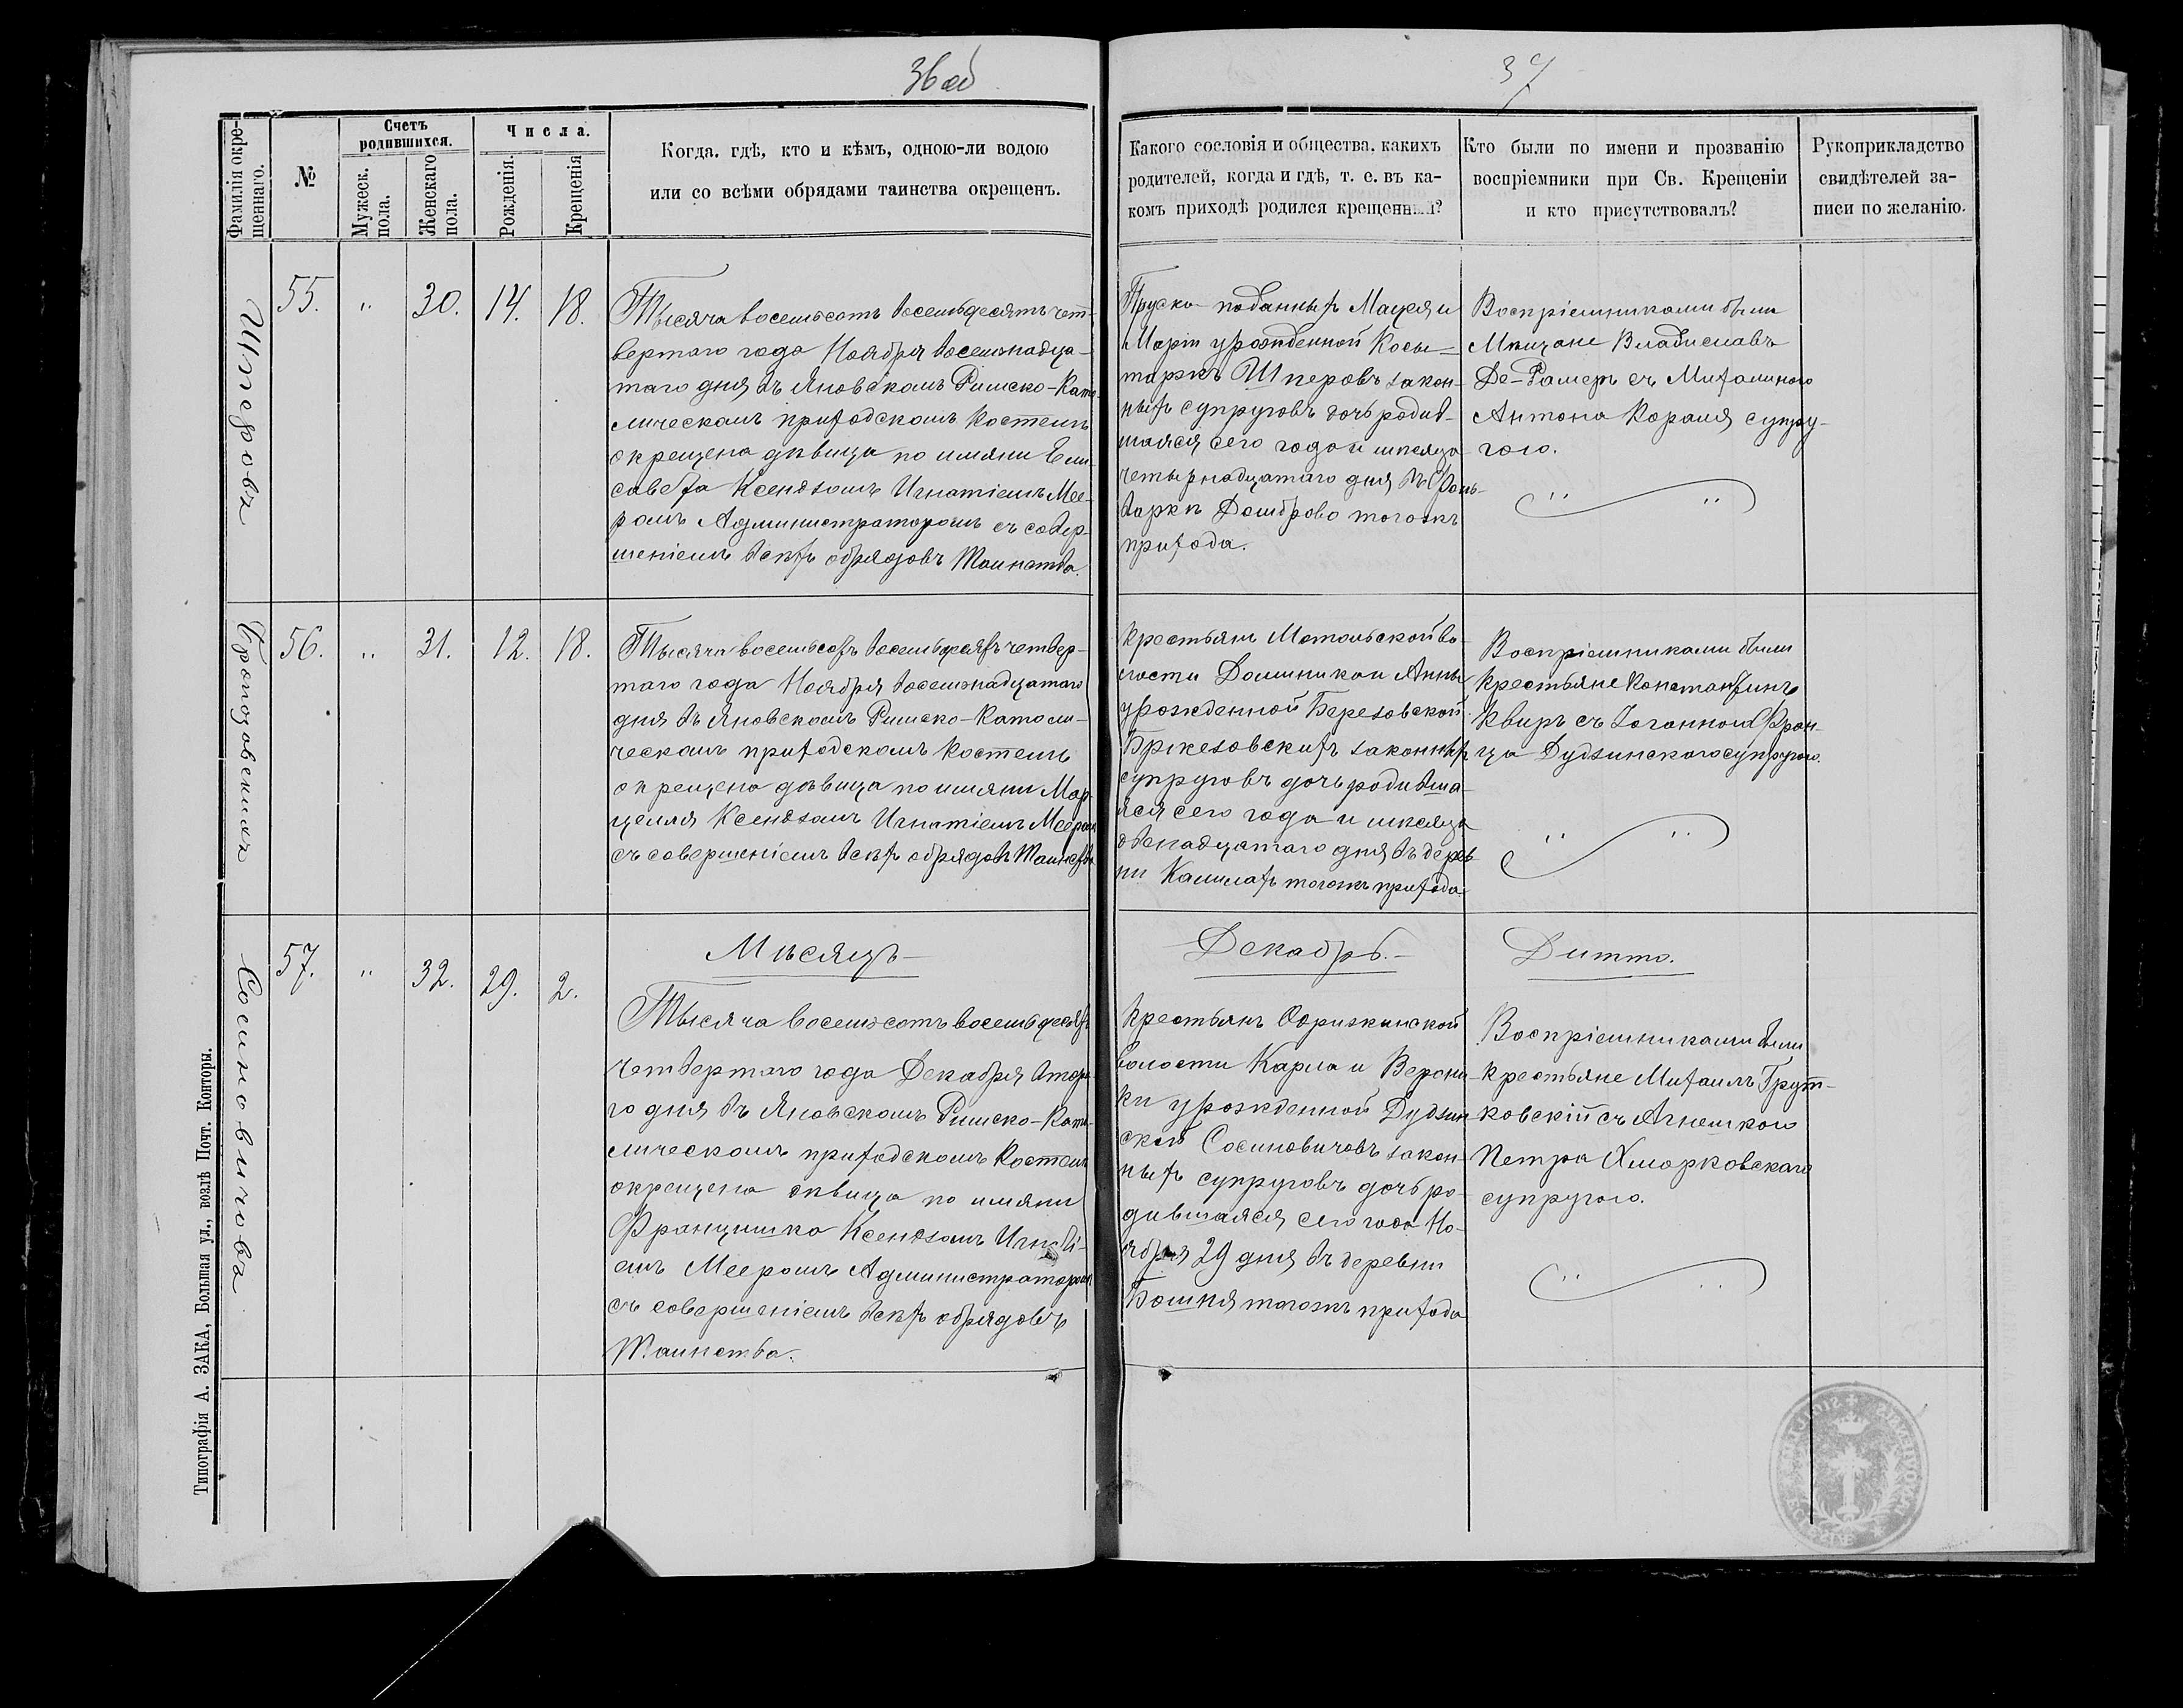 36 об
37
Фамилія окре-
щеннаго.
№
Счетъ
родившихся.
Мужеск.
пола.
Женскаго
пола.
Числа.
Рожденія.
Крещенія
Когда. гдѣ, кто и кѣмъ, одною-ли водою
или со всѣми обрядами таинства окрещенъ.
Какого сословія и общества. какихъ
родителей, когда и гдѣ, т. е. въ ка-
комъ приходѣ родился крещенный?
Кто были по имени и прозванію
воспріемники при Св. Крещеніи
и кто присутствовалъ?
Рукоприкладство
свидѣтелей за-
писи по желанію.
Шперовъ
55. " 30. 14. 18.
Тысяча восемьсотъ восемьдесятъ чет-
вертаго года Ноября восемнадца-
таго дня въ Яновскомъ Римско-Като-
лическомъ приходскомъ костелѣ
окрещена дѣвица по имяни Ели-
савета Ксендзомъ Игнатіемъ Мее-
ромъ Администраторомъ съ совер-
шеніемъ всѣхъ обрядовъ Таинства.
Пруско-поданныхъ Мацея и
Маріи урожденной Косы-
таркъ Шперовъ закон-
ныхъ супруговъ дочь родив-
шаяся сего года и мѣсяца
четырнадцатаго дня въ Фоль-
варкѣ Домброво тогожъ
прихода.
Воспріемниками были
Мѣщане Владиславъ
Де-Рамеръ съ Михалиною
Антона Кораля супру-
гою.
56. " 31. 12. 18.
Тысяча восемьсотъ восемьдесятъ четвер-
таго года Ноября восемнадцатаго
дня въ Яновскомъ Римско-Католи-
ческомъ приходскомъ костелѣ
окрещена дѣвица по имяни Мар-
целля Ксендзомъ Игнатіемъ Мееромъ
съ совершеніемъ всѣхъ обрядовъ Таинства
Крестьянъ Мотольской во-
лости Доминика и Анны
урожденной Березовской
законныхъ
супруговъ дочь родивша-
яся сего года и мѣсяца
двенадцатаго дня въ дерев-
ни тогожъ прихода.
Воспріемниками были
крестьяне Константинъ
Квиръ съ Іоганною Фран-
ца Дудзинскаго супругою.
Сосиновичовъ
57. " 32. 29. 2.
Мѣсяцъ
Декабрь.
Дитто.
Тысяча восемьсотъ восемьдесятъ
четвертаго года Декабря второ-
го дня въ Яновскомъ Римско-Като-
лическомъ приходскомъ костелѣ
окрещена дѣвица по имяни
Францишка Ксендзомъ Игнаті-
емъ Мееромъ Администраторомъ
съ совершеніемъ всѣхъ обрядовъ
Таинства.
Крестьянъ Одрижинской
волости Карла и Верони-
ки урожденной Дудзин-
ской Сосиновичовъ закон-
ныхъ супруговъ дочь ро-
дившаяся сего года Но-
ября 29 дня въ деревни
тогожъ прихода
Воспріемниками были
крестьяне Михаилъ Грут-
ковскій съ Агнешкою
Петра Хмарковскаго
супругою.
Типографія А. ЗАКА, Большая ул., возлѣ Почт. Конторы.